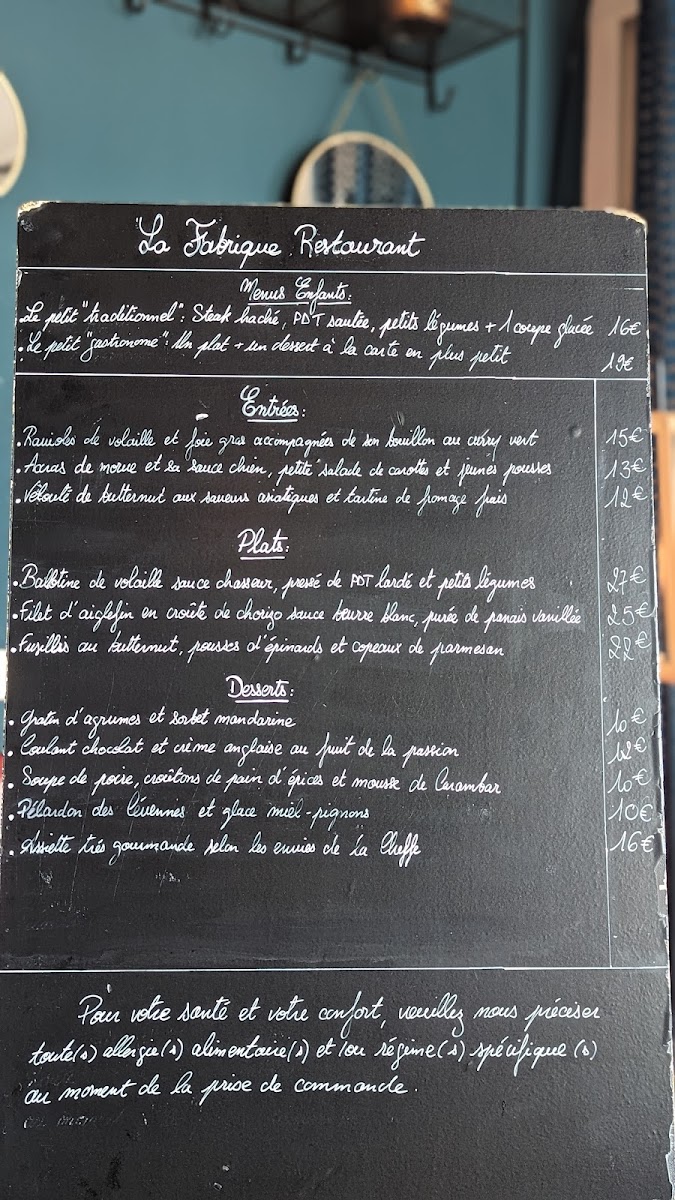 La Fabrique Restaurant
Menus Enfants:
. Le petit "traditionnel": Steak haché, PDT sautée, petits légumes + 1 coupe glacée 16€
. Le petit "gastronome": Un plat + un dessert à la carte en plus petit 19€
Entrées:
. Ravioles de volaille et foie gras accompagnées de son bouillon au curry vert 15€
. Acras de morue et sa sauce chien, petite salade de carottes et jeunes pousses 13€
. Velouté de butternut aux saveurs asiatiques et tartine de fromage frais 12€
Plats:
. Ballotine de volaille sauce chasseur, pressé de PDT lardé et petits légumes 27€
. Filet d'aiglefin en croûte de chorizo sauce beurre blanc, purée de panais vanillée 25€
. Fusillis au butternut, pousses d'épinards et copeaux de parmesan 22€
Desserts:
. Gratin d'agrumes et sorbet mandarine 10€
. Coulant chocolat et crème anglaise au fruit de la passion 12€
. Soupe de poire, croûtons de pain d'épices et mousse de Carambar 10€
. Pélardon des Cévennes et glace miel-pignons 10€
. Assiette très gourmande selon les envies de La Cheffe 16€
Pour votre santé et votre confort, veuillez nous préciser
toute(s) allergie(s) alimentaire(s) et/ou régime(s) spécifique(s)
au moment de la prise de commande.